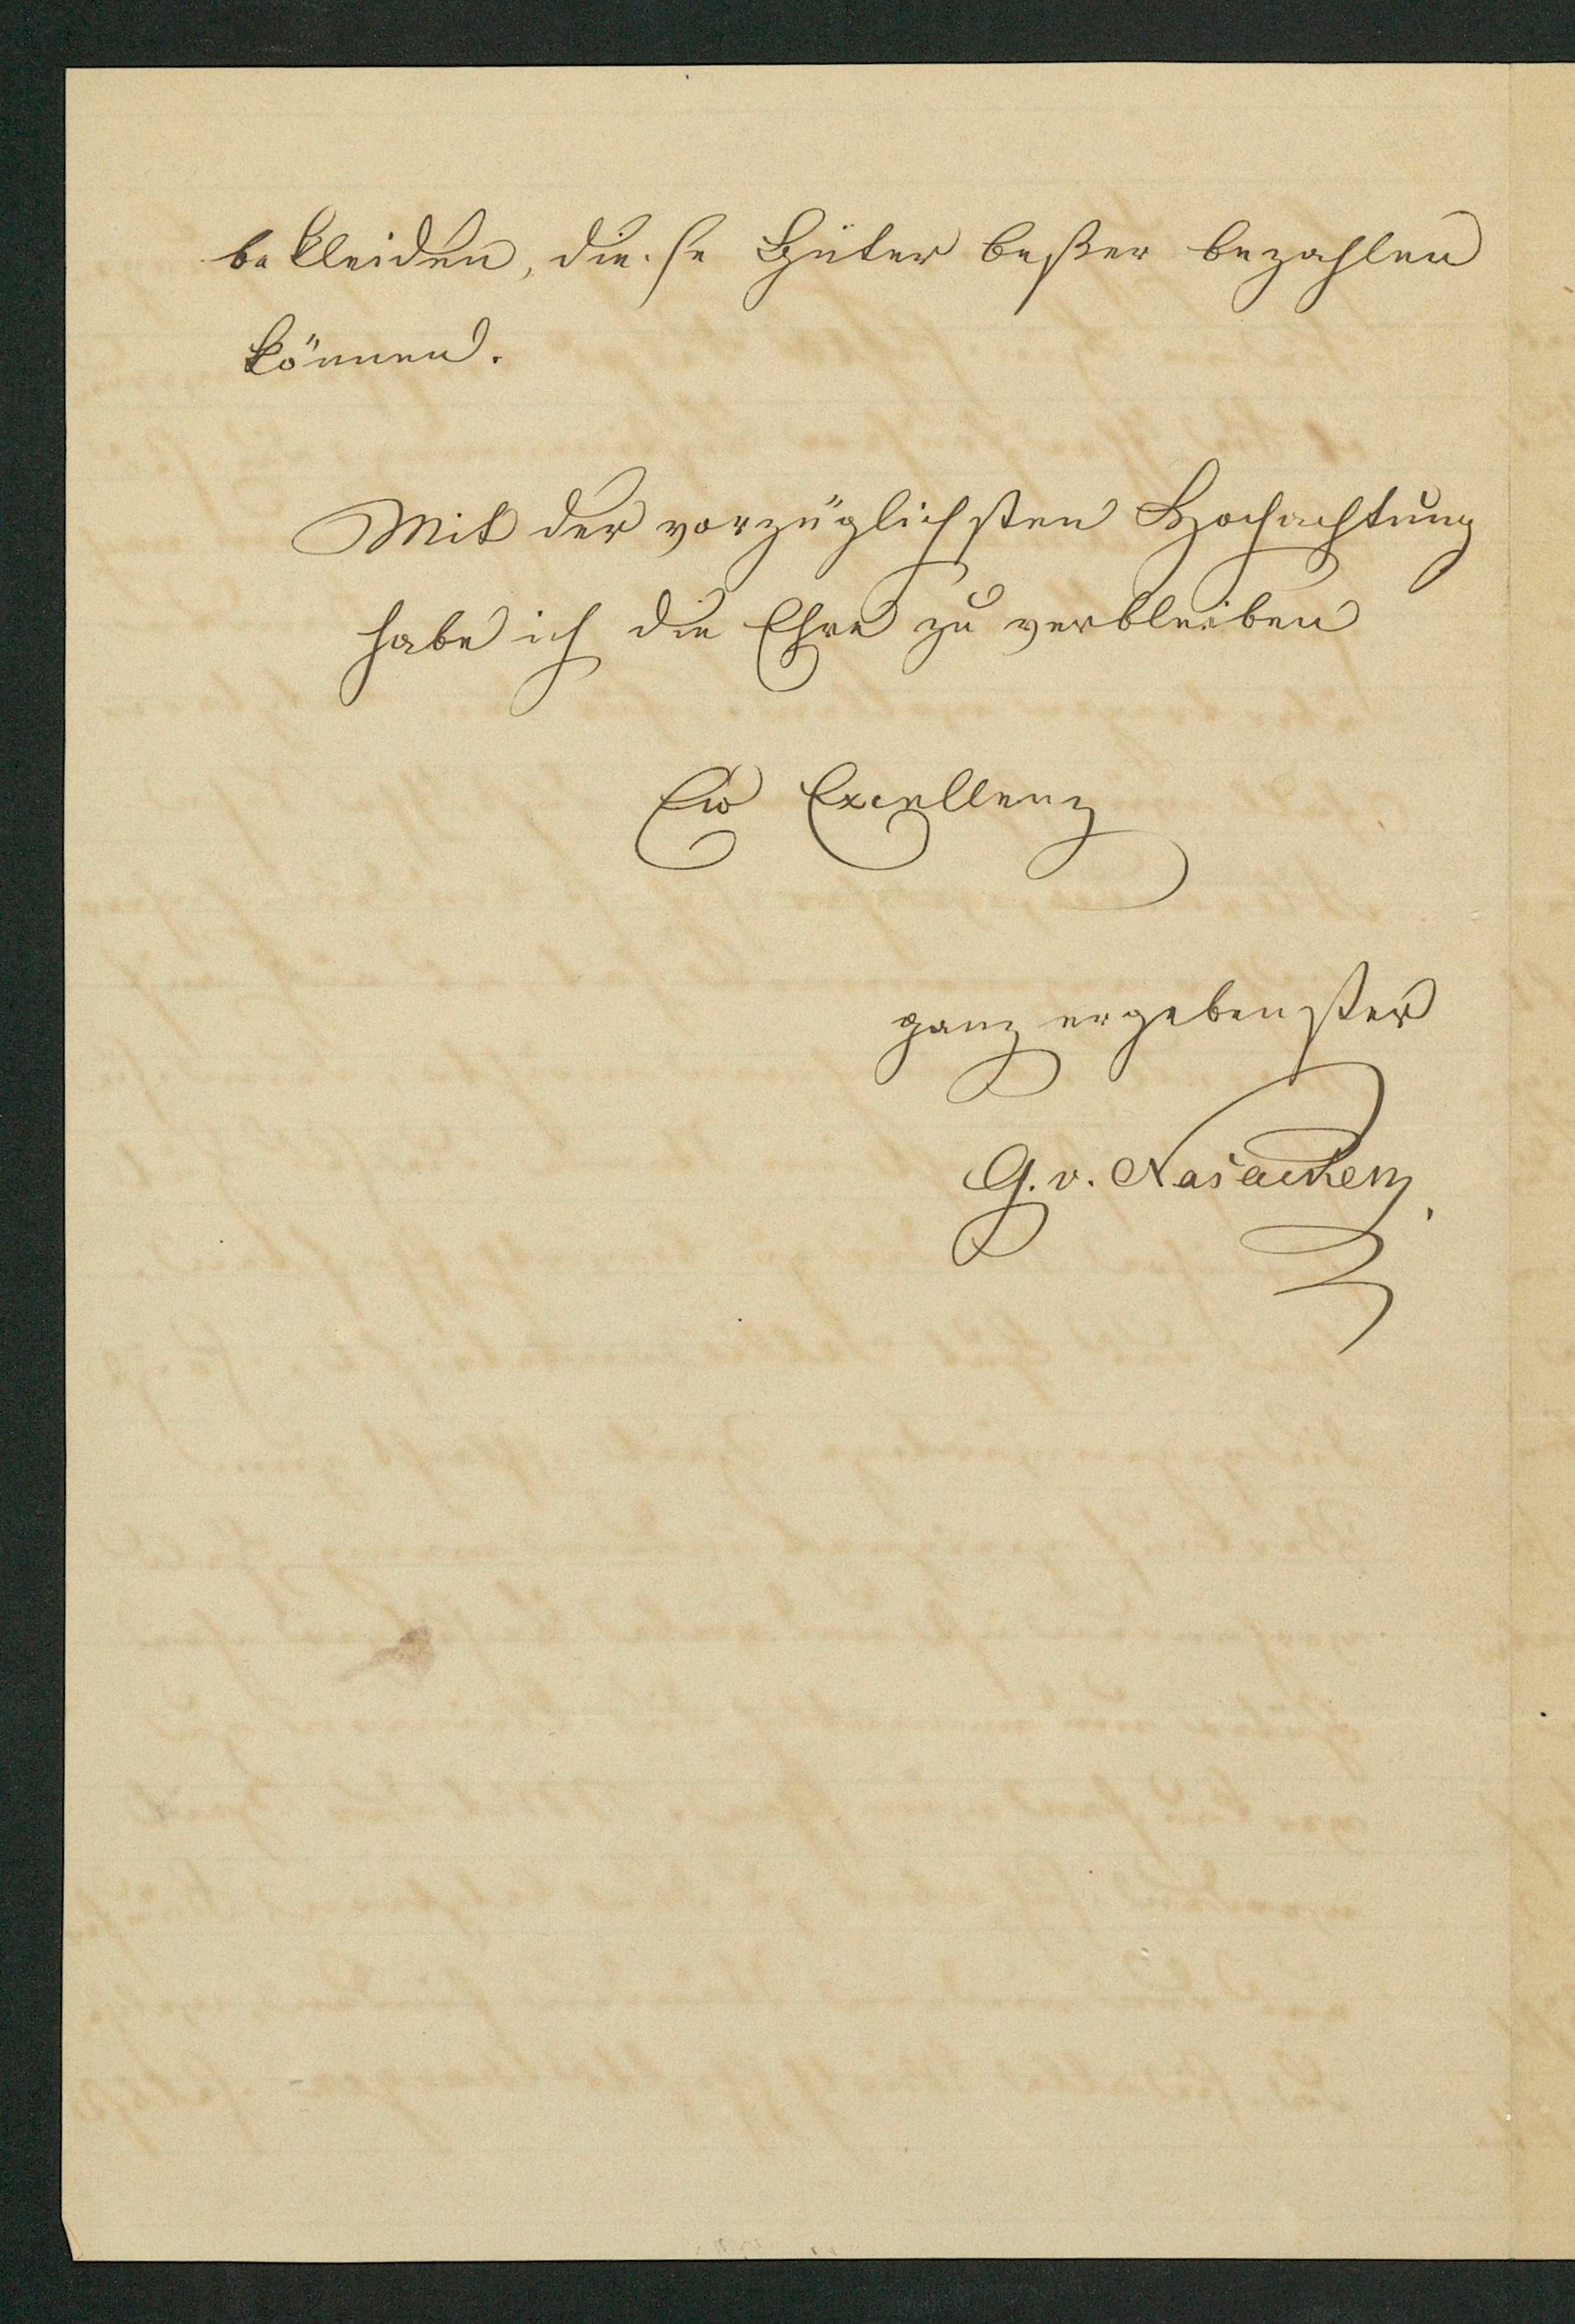 bekleiden, diese Güter beßer bezahlen
können.
Mit der vorzüglichsten Hochachtung
habe ich die Ehre zu verbleiben
Ew Excellenz
ganz ergebenster
G. v. Nasacken